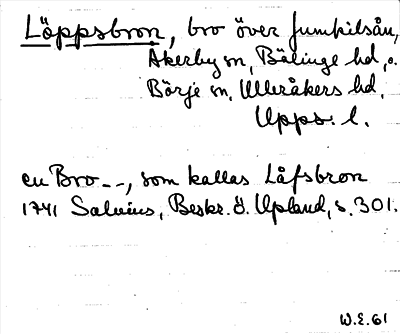 Löppsbron, bro över Jumkilsån,
Åkerby sn, Bälinge hd, o.
Börje sn, Ulleråkers hd,
Upps. l.
en Bro - -, som kallas Låfsbron
1741 Salvius, Beskr. ö. Upland, s. 301.
W.E. 61